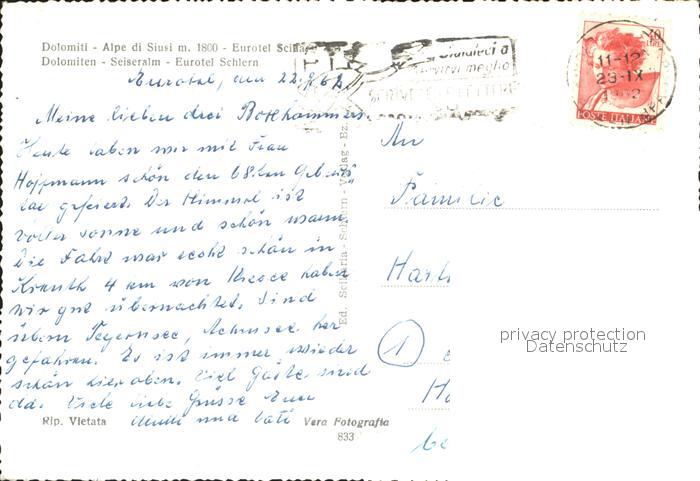 Dolomiti - Alpe di Siusi m. 1800 - Eurotel Sciliar
Dolomiten - Seiseralm - Eurotel Schlern
Eurotel, den 22.9.62
Meine lieben drei
Heute haben wir mit Frau
Hoffmann schön den 68. ten Geburts
tag gefeiert. Der Himmel ist
voller Sonne und schön warm.
Die Fahrt war recht schön in
Kreuth 4 km von haben
wir gut übernachtet. Sind
übern Tegernsee, Achensee her
gefahren. Es ist immer wieder
schön hier oben. Viel Gäste sind
da. Viele liebe Grüsse Euer
Mutti und Vati
Rip. Vietata
Vera Fotografia
833
Ed. Scilaria - Schlern - Verlag - Bz.
servirvi meglio
11-12
29-IX
1962
POSTE ITALIANE
An
Familie
Hart
1
H
privacy protection
Datenschutz